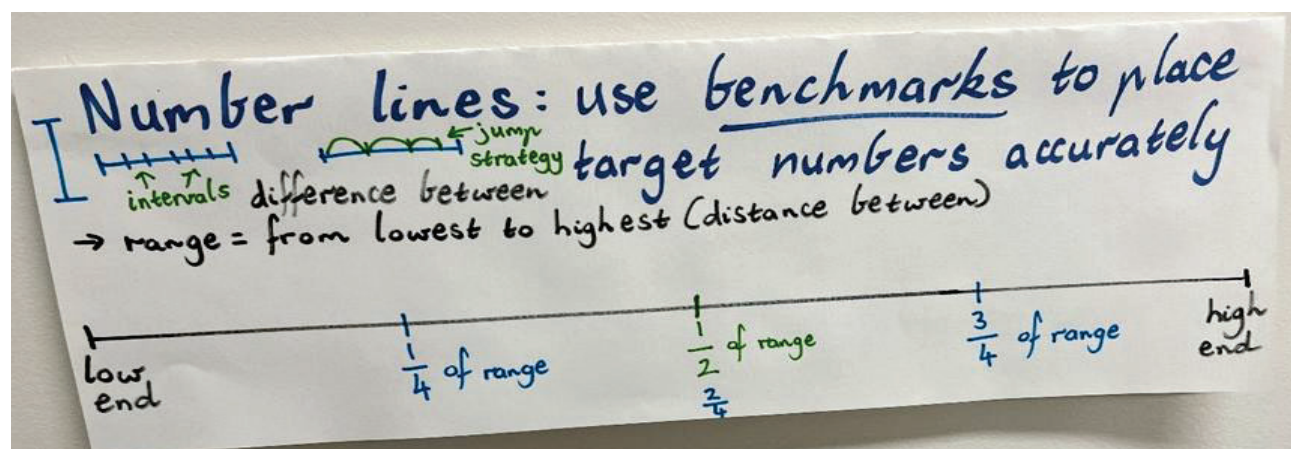 Number lines: use benchmarks to place
target numbers accurately
← jump
strategy
intervals
difference between
→ range = from lowest to highest (distance between)
low
end
1/4 of range
1/2 of range
2/4
3/4 of range
high
end